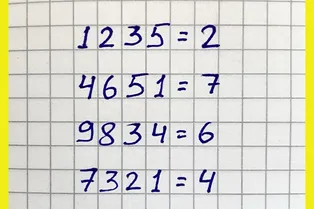 1235=2
4651=7
9834=6
7321=4